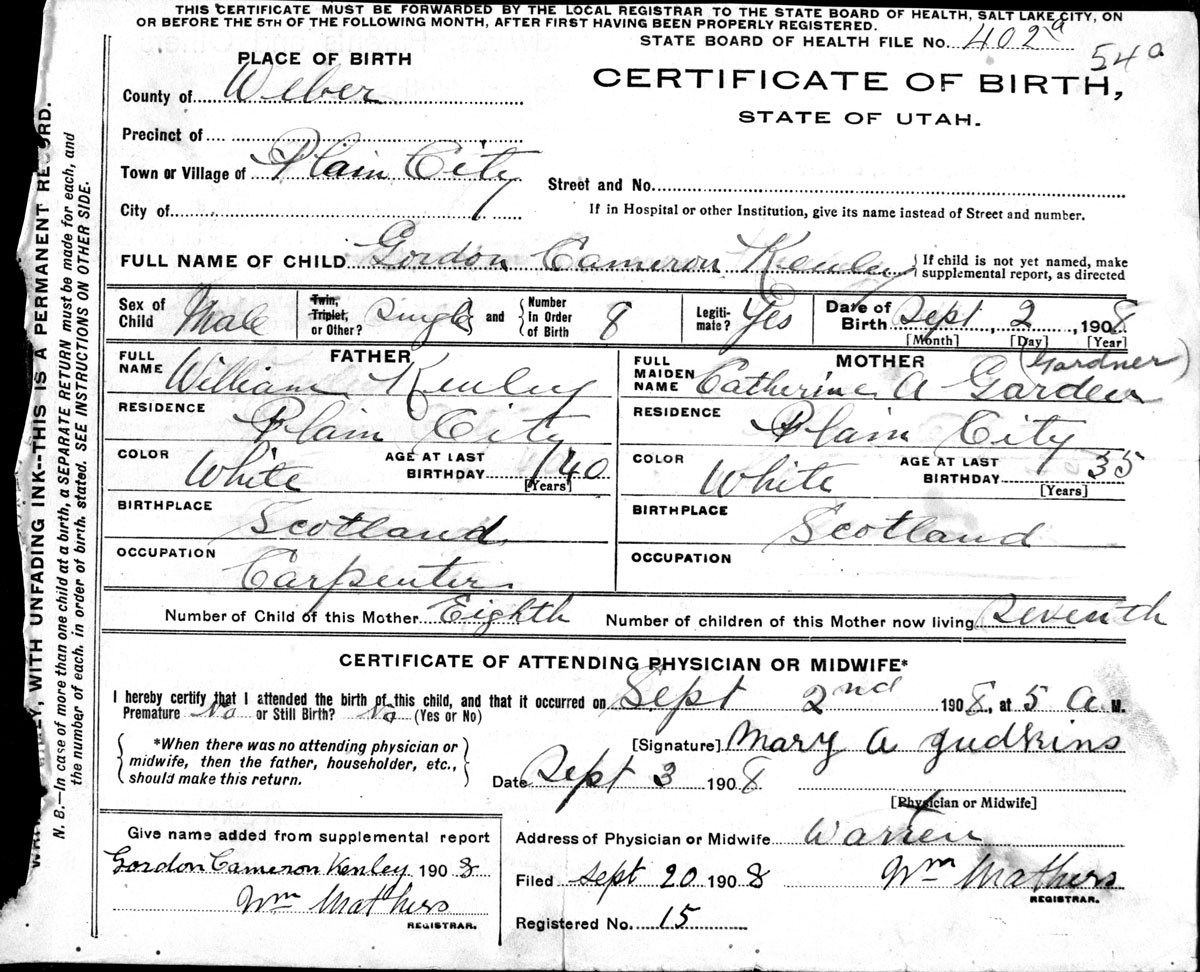 THIS CERTIFICATE MUST BE FORWARDED BY THE LOCAL REGISTRAR TO THE STATE BOARD OF HEALTH, SALT LAKE CITY, ON
OR BEFORE THE 5TH OF THE FOLLOWING MONTH, AFTER FIRST HAVING BEEN PROPERLY REGISTERED.
STATE BOARD OF HEALTH FILE No. 402a
54a
PLACE OF BIRTH
CERTIFICATE OF BIRTH,
STATE OF UTAH.
County of Weber
Precinct of
Town or Village of Plain City
Street and No.
City of
If in Hospital or other Institution, give its name instead of Street and number.
FULL NAME OF CHILD Gordon Cameron Kenley { If child is not yet named, make supplemental report, as directed
Sex of Child Male Twin, Triplet, or Other? Single and { Number In Order of Birth 8 Legiti-mate? Yes Date of Birth Sept, 2, 1908
[Month] [Day] [Year]
FATHER
FULL NAME William Kenley
RESIDENCE Plain City
COLOR White AGE AT LAST BIRTHDAY 40 [Years]
BIRTHPLACE Scotland
OCCUPATION Carpenter
MOTHER (Gardner)
FULL MAIDEN NAME Catherine A Garden
RESIDENCE Plain City
COLOR White AGE AT LAST BIRTHDAY 35 [Years]
BIRTHPLACE Scotland
OCCUPATION
Number of Child of this Mother Eighth Number of children of this Mother now living Seventh
CERTIFICATE OF ATTENDING PHYSICIAN OR MIDWIFE*
I hereby certify that I attended the birth of this child, and that it occurred on Sept 2nd 1908, at 5 A M.
Premature No or Still Birth? No (Yes or No)
*When there was no attending physician or
midwife, then the father, householder, etc.,
should make this return.
[Signature] Mary A Judkins
Date Sept 3 1908
[Physician or Midwife]
Give name added from supplemental report
Gordon Cameron Kenley 1908
Wm Mathers
REGISTRAR.
Address of Physician or Midwife Warren
Filed Sept 20 1908 Wm Mathers
REGISTRAR.
Registered No. 15
WITH UNFADING INK--THIS IS A PERMANENT RECORD.
N. B.—In case of more than one child at a birth, a SEPARATE RETURN must be made for each, and
the number of each, in order of birth, stated. SEE INSTRUCTIONS ON OTHER SIDE.